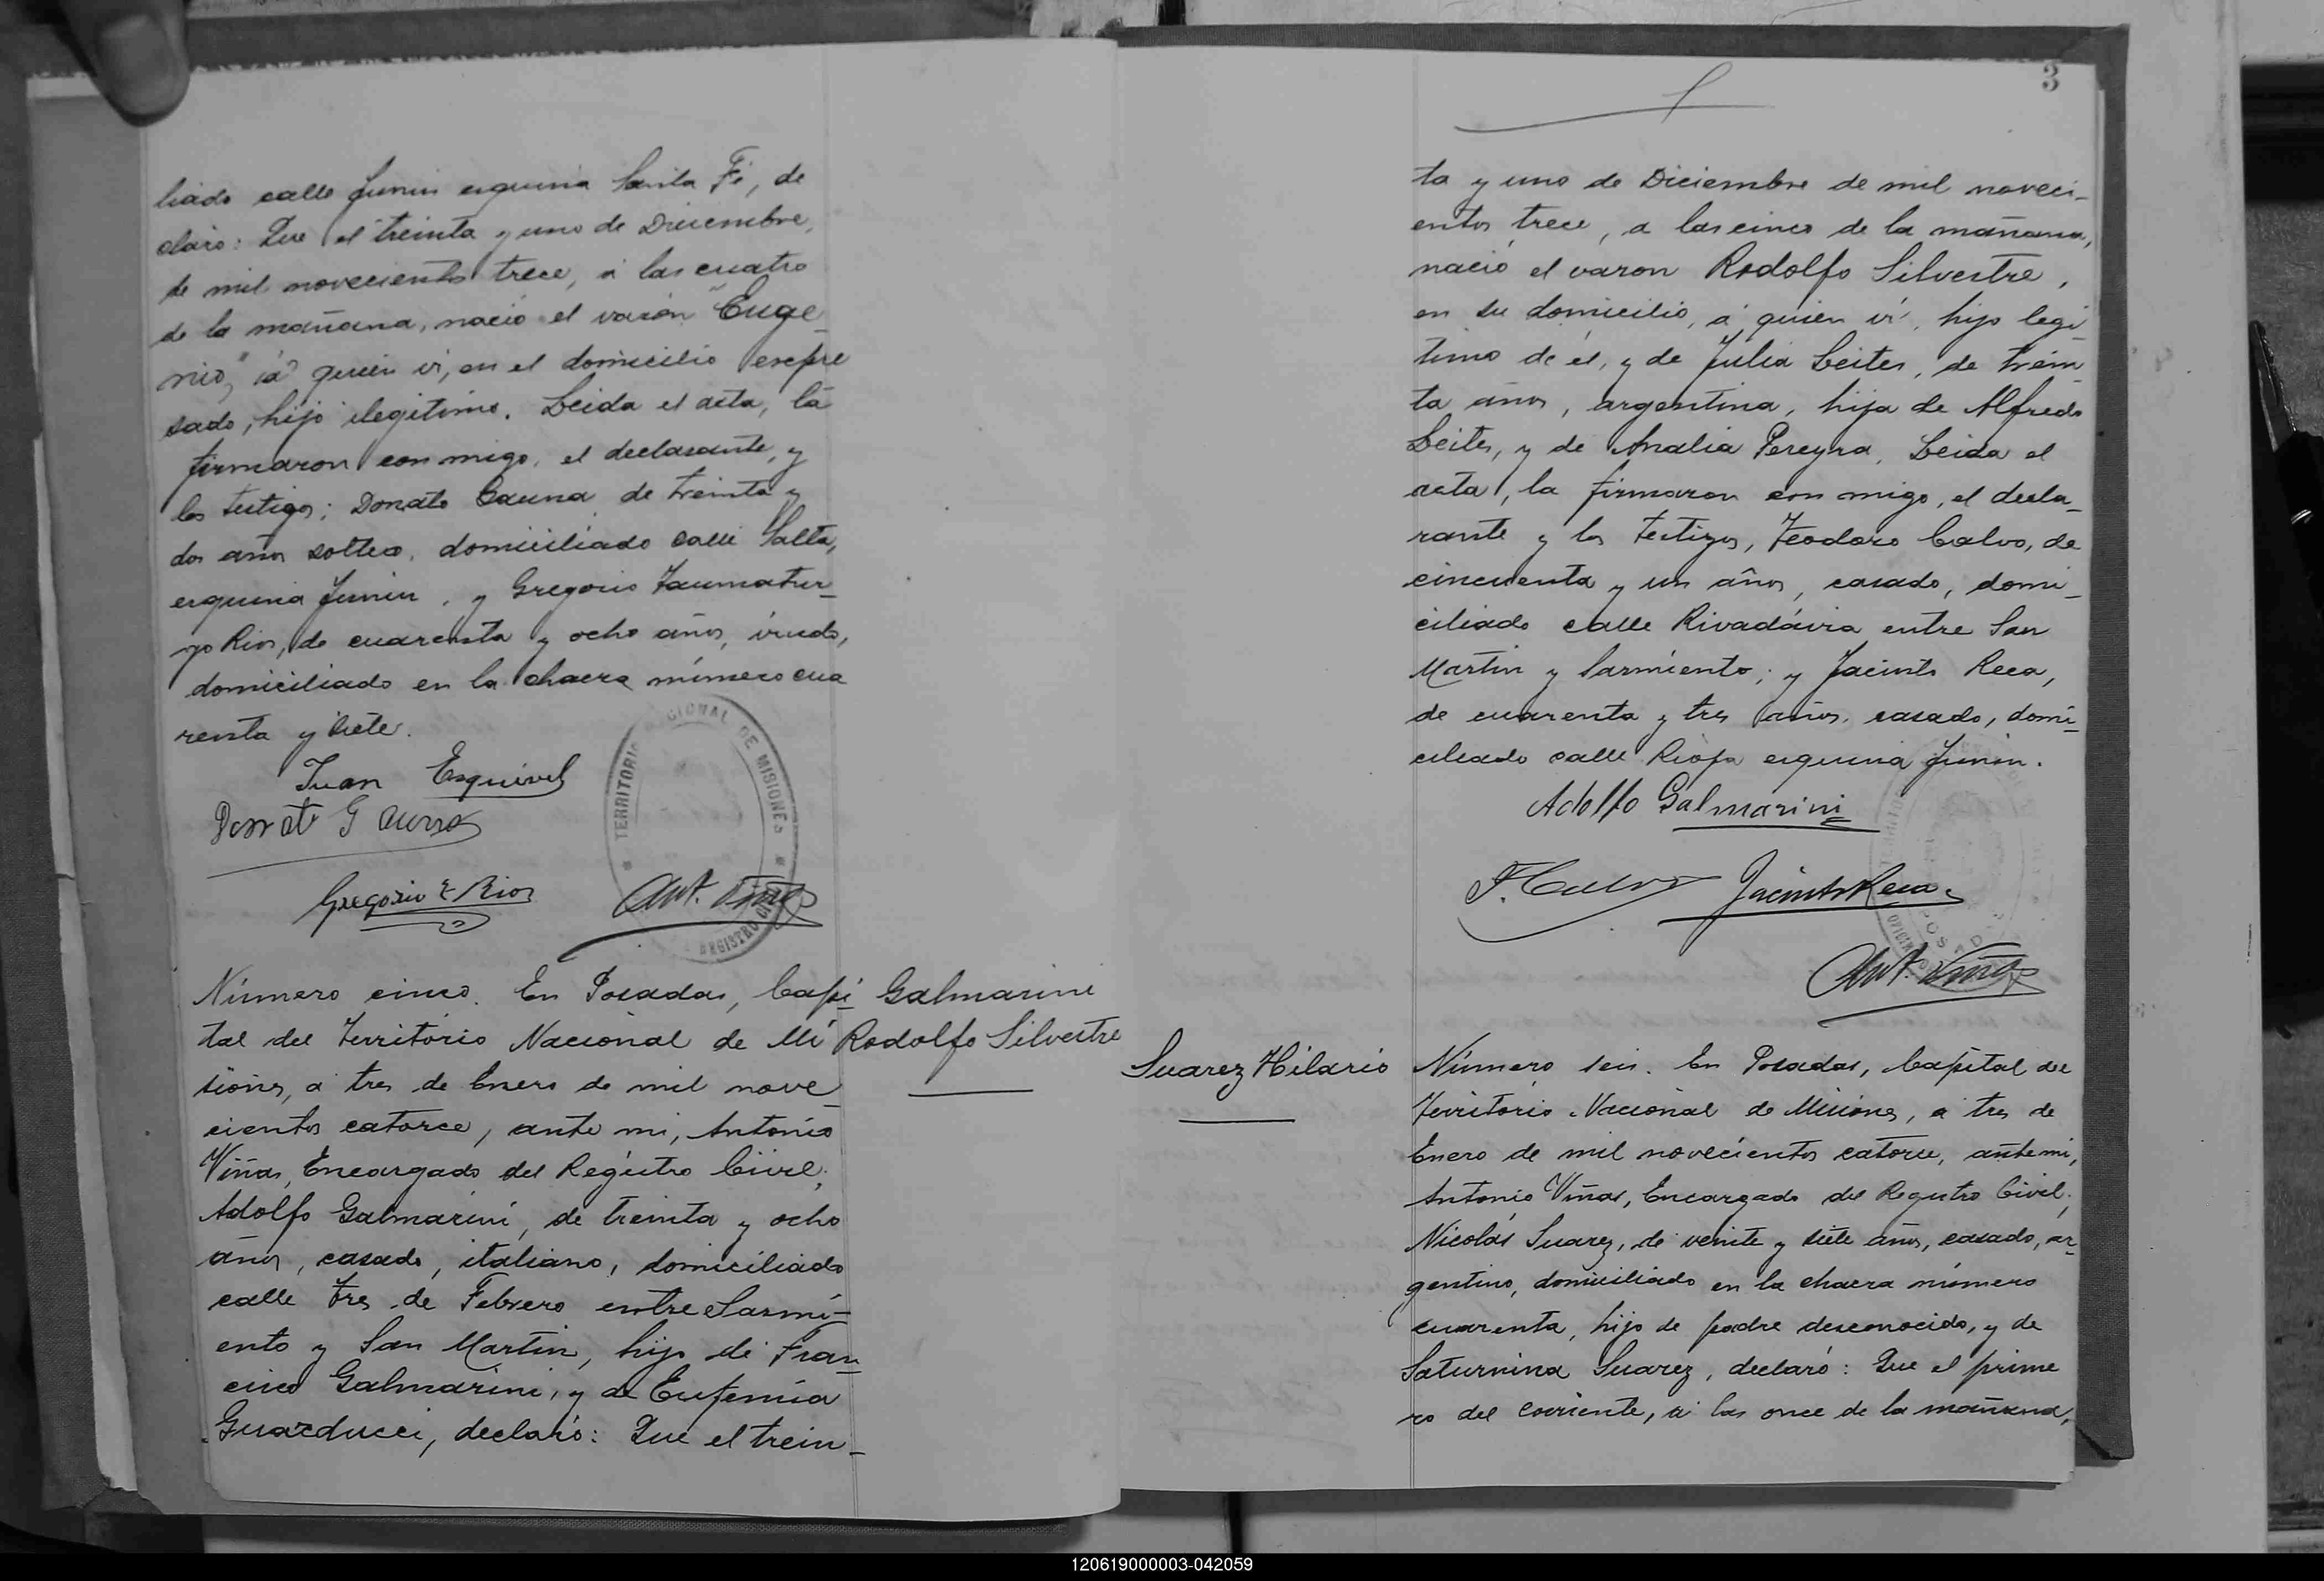 liado calle Junin esquina Santa Fé, de
claró: Que el treinta y uno de Diciembre,
de mil novecientos trece, á las cuatro
de la mañana, nació el varón "Euge
nio," á quien ví, en el domicilio espre
sado, hijo ilegitimo. Leida el acta, la
firmaron con migo, el declarante, y
los testigos; Donato Gauna, de treinta y
dos años soltero, domiciliado calle Salta,
esquina Junin, y Gregorio Taumatur-
go Rios, de cuarenta y ocho años, viudo,
domiciliado en la chacra número cua
renta y siete.
Juan Esquivel
Donato Gauna
Gregorio T. Rios
Ant. Viñas
TERRITORIO NACIONAL DE MISIONES
REGISTRO
Número cinco. En Posadas, Capi-
tal del Territorio Nacional de Mi
siones, á tres de Enero de mil nove_
cientos catorce, ante mi, Antonio
Viñas, Encargado del Registro Civil;
Adolfo Galmarini, de treinta y ocho
años, casado, italiano, domiciliado
calle tres de Febrero entre Sarmi-
ento y San Martin, hijo de Fran_
cisco Galmarini, y de Eufemia
Guarducci, declaró: Que el trein_
Galmarini
Rodolfo Silvestre
3
ta y uno de Diciembre de mil noveci-
entos trece, a las cinco de la mañana,
nació el varon Rodolfo Silvestre,
en su domicilio, á quien ví, hijo legi
timo de él, y de Julia Leites, de trein
ta años, argentina, hija de Alfredo
Leites, y de Analia Pereyra. Leida el
acta, la firmaron con migo, el decla_
rante y los testigos, Teodoro Calvo, de
cincuenta y un años, casado, domi_
ciliado calle Rivadávia entre San
Martin y Sarmiento; y Jacinto Reca,
de cuarenta y tres años, casado, domi-
ciliado calle Rioja esquina Junin.
Adolfo Galmarini
T. Calvo
Jacinto Reca
Ant. Viñas
Suarez Hilario
Número seis. En Posadas, Capital del
Territorio Nacional de Misiones, á tres de
Enero de mil novecientos catorce, ante mi,
Antonio Viñas, Encargado del Registro Civil;
Nicolás Suarez, de veinte y siete años, casado, ar-
gentino, domiciliado en la chacra número
cuarenta, hijo de padre desconocido, y de
Saturnina Suarez, declaró: Que el prime
ro del corriente, á las once de la mañana,
120619000003-042059